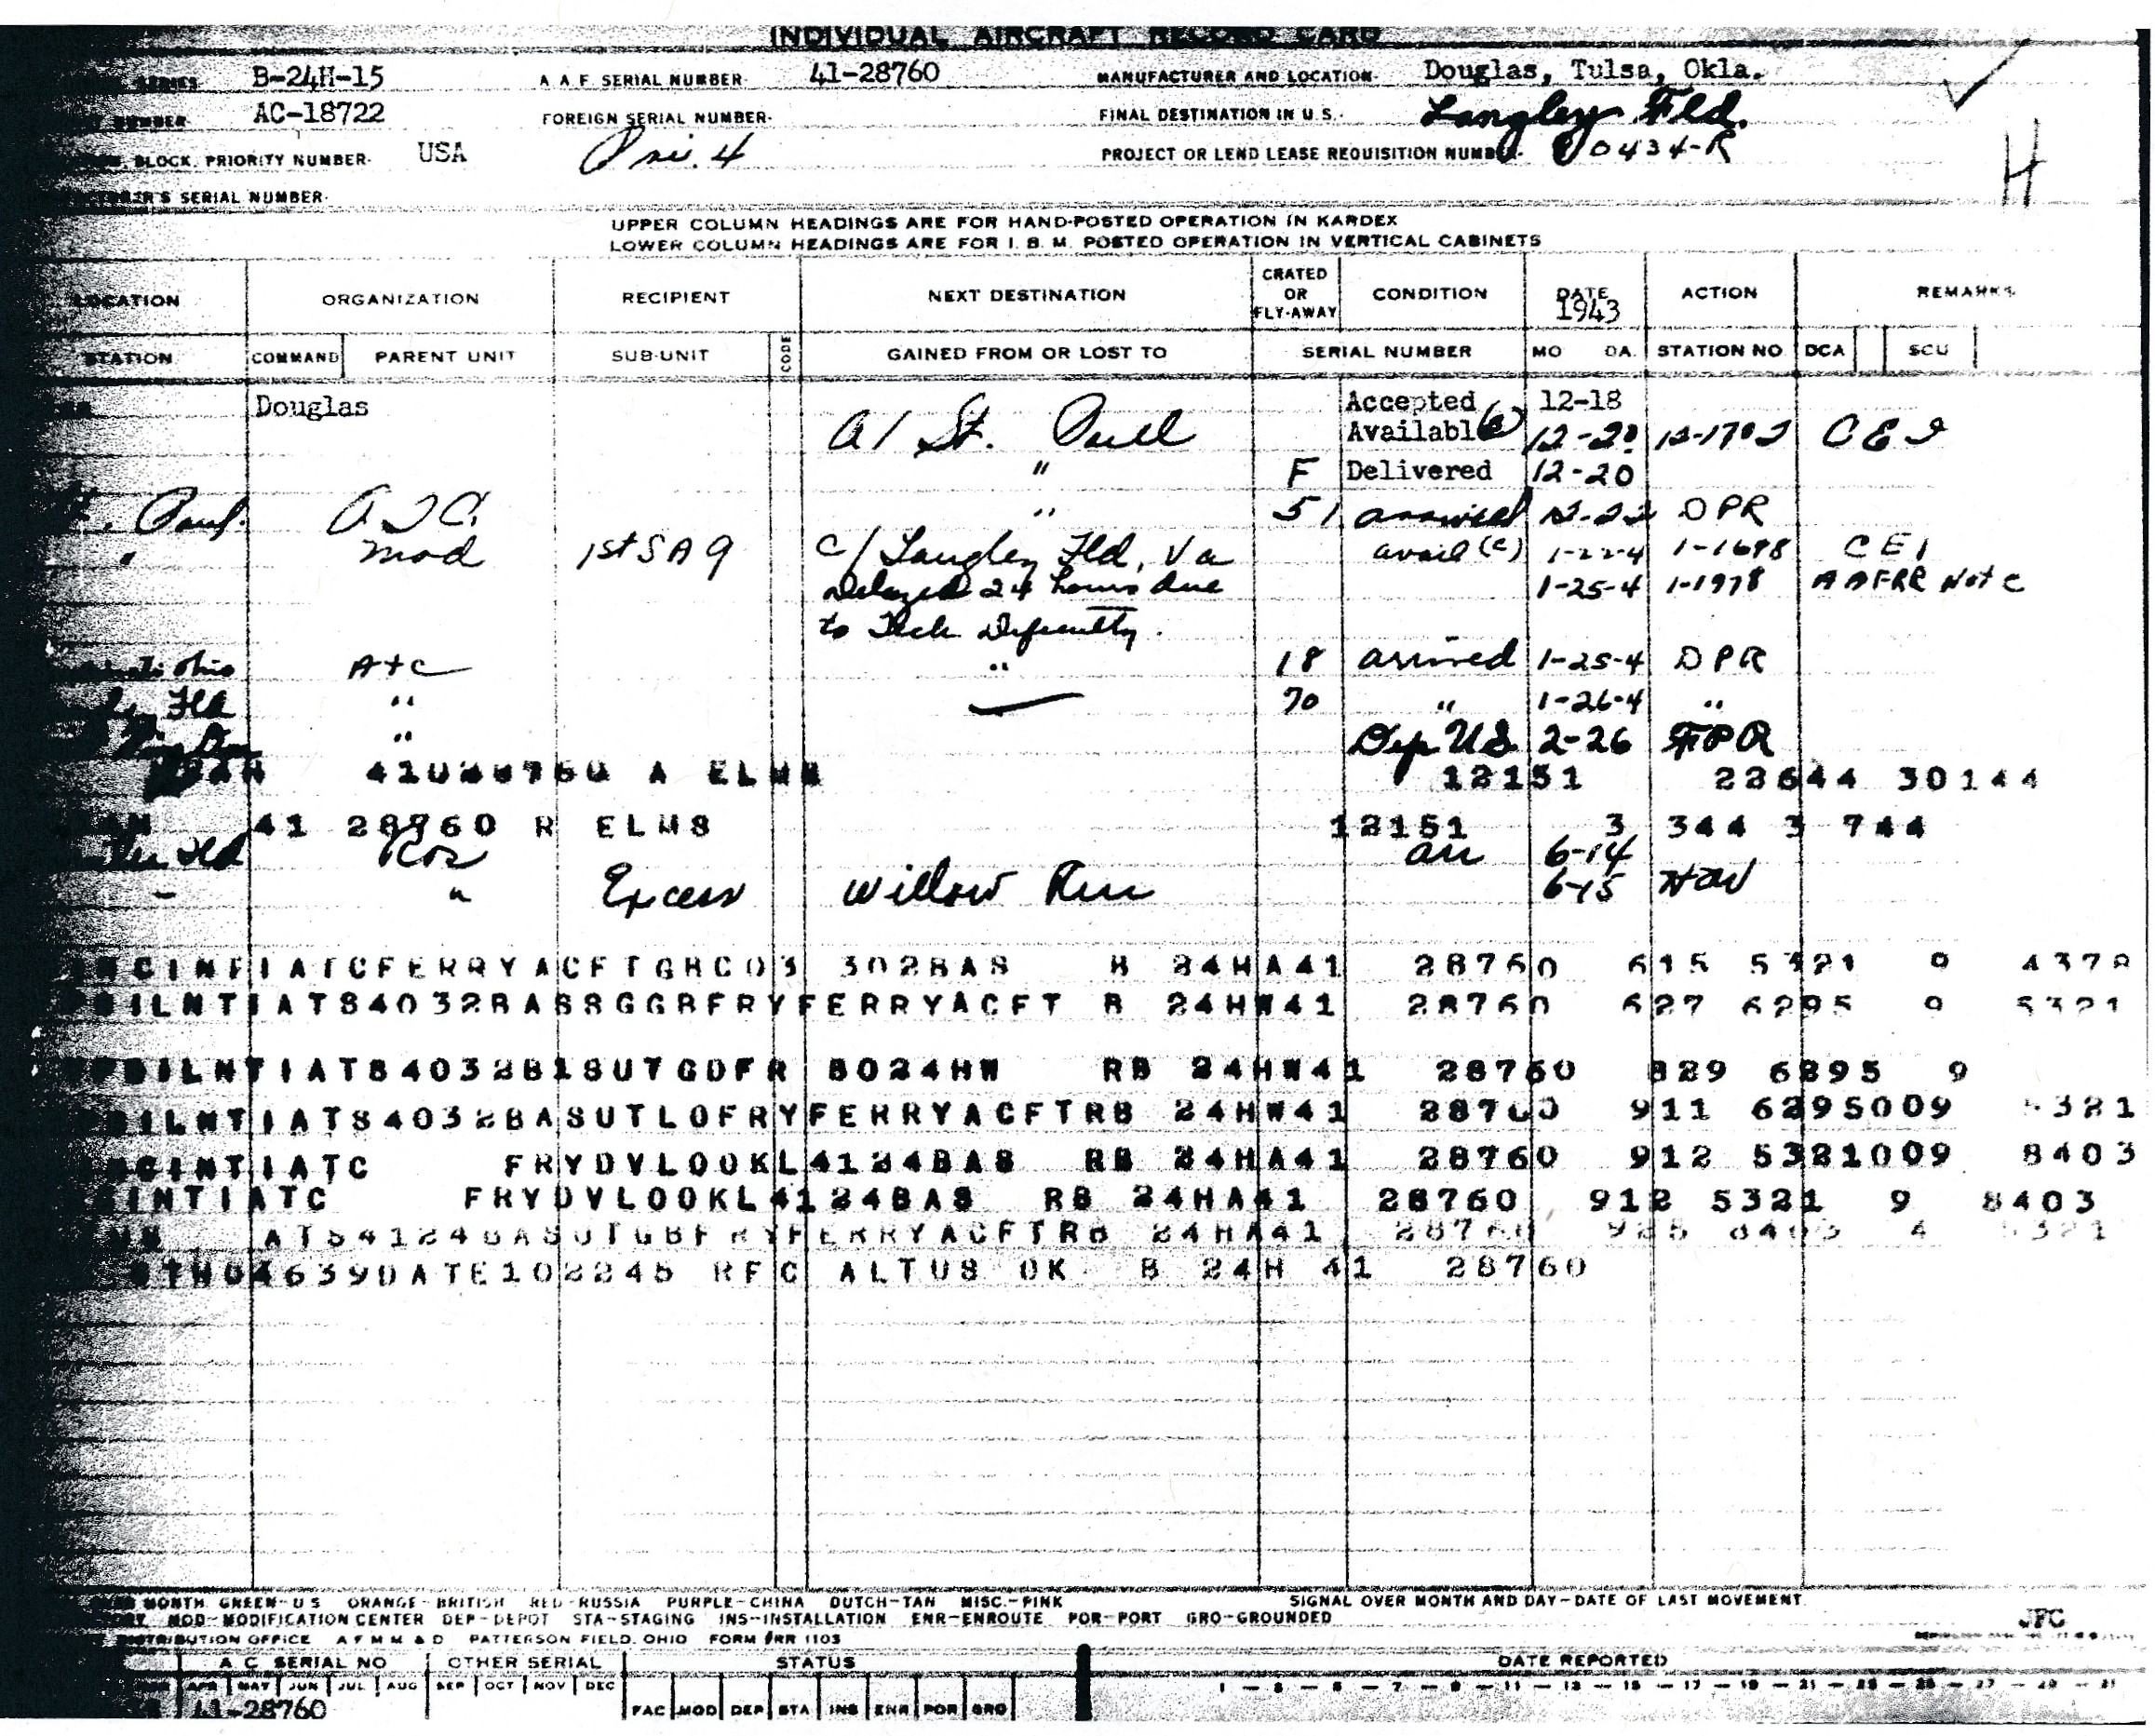 INDIVIDUAL AIRCRAFT RECORD CARD
SERIES B-24H-15 A A. F. SERIAL NUMBER- 41-28760 MANUFACTURER AND LOCATION- Douglas, Tulsa, Okla.
NUMBER AC-18722 FOREIGN SERIAL NUMBER- FINAL DESTINATION IN U.S.- Langley Fld.
BLOCK, PRIORITY NUMBER- USA Pri. 4 PROJECT OR LEND LEASE REQUISITION NUMBER- 90434-R
H
SERIAL NUMBER-
UPPER COLUMN HEADINGS ARE FOR HAND-POSTED OPERATION IN KARDEX
LOWER COLUMN HEADINGS ARE FOR I. B. M. POSTED OPERATION IN VERTICAL CABINETS
LOCATION ORGANIZATION RECIPIENT NEXT DESTINATION CRATED OR FLY-AWAY CONDITION DATE 1943 ACTION REMARKS
STATION COMMAND PARENT UNIT SUB-UNIT CODE GAINED FROM OR LOST TO SERIAL NUMBER MO DA. STATION NO. DCA SCU
Douglas Accepted 12-18
A/ St. Paul Available (C) 12-20 12-1702 C E I
" F Delivered 12-20
Paul. " 51 arrived 12-22 DPR
" Mod 1st S A 9 C/ Langley Fld, Va avail (C) 1-22-4 1-1698 C E I
Delayed 24 hours due 1-25-4 1-1978 AAFRR Note
to Tech Difficulty.
Ohio ATC " 18 arrived 1-25-4 DPR
Fld " — 70 " 1-26-4 "
" Dep US 2-26 FPR
A ELMS 12151 22644 30144
41 28760 R ELMS 12151 3 344 3 744
Fld arr 6-14
" Excess Willow Run 6-15
NCINFIATCFERRYACFTGRC03 302BAS B 24HA41 28760 615 5321 9 4378
ILNTIATS4032BASSGGBFRYFERRYACFT B 24HW41 28760 627 6295 9 5321
ILNTIATS4032B1SUTGDFR B024HW RB 24HW41 28760 829 6295 9
ILNTIATS4032BASUTLOFRYFERRYACFTRB 24HW41 28760 911 6295009 5321
CINTIATC FRYDVLOOKL4124BAS RB 24HA41 28760 912 5321009 8403
INTIATC FRYDVLOOKL4124BAS RB 24HA41 28760 912 5321 9 8403
ATS4124BASUTGBFRYFERRYACFTRB 24HA41 28760 925 8403 4 5321
DATE102245 RFC ALTUS OK B 24H 41 28760
MONTH. GREEN-U S ORANGE-BRITISH RED-RUSSIA PURPLE-CHINA DUTCH-TAN MISC.-PINK SIGNAL OVER MONTH AND DAY-DATE OF LAST MOVEMENT.
MOD-MODIFICATION CENTER DEP-DEPOT STA-STAGING INS-INSTALLATION ENR-ENROUTE POR-PORT GRO-GROUNDED
JFC
DISTRIBUTION OFFICE A F M M & D PATTERSON FIELD, OHIO FORM #RR 1103
A C SERIAL NO OTHER SERIAL STATUS DATE REPORTED
APR MAY JUN JUL AUG SEP OCT NOV DEC
41-28760 FAC MOD DEP STA INS ENR POR GRO